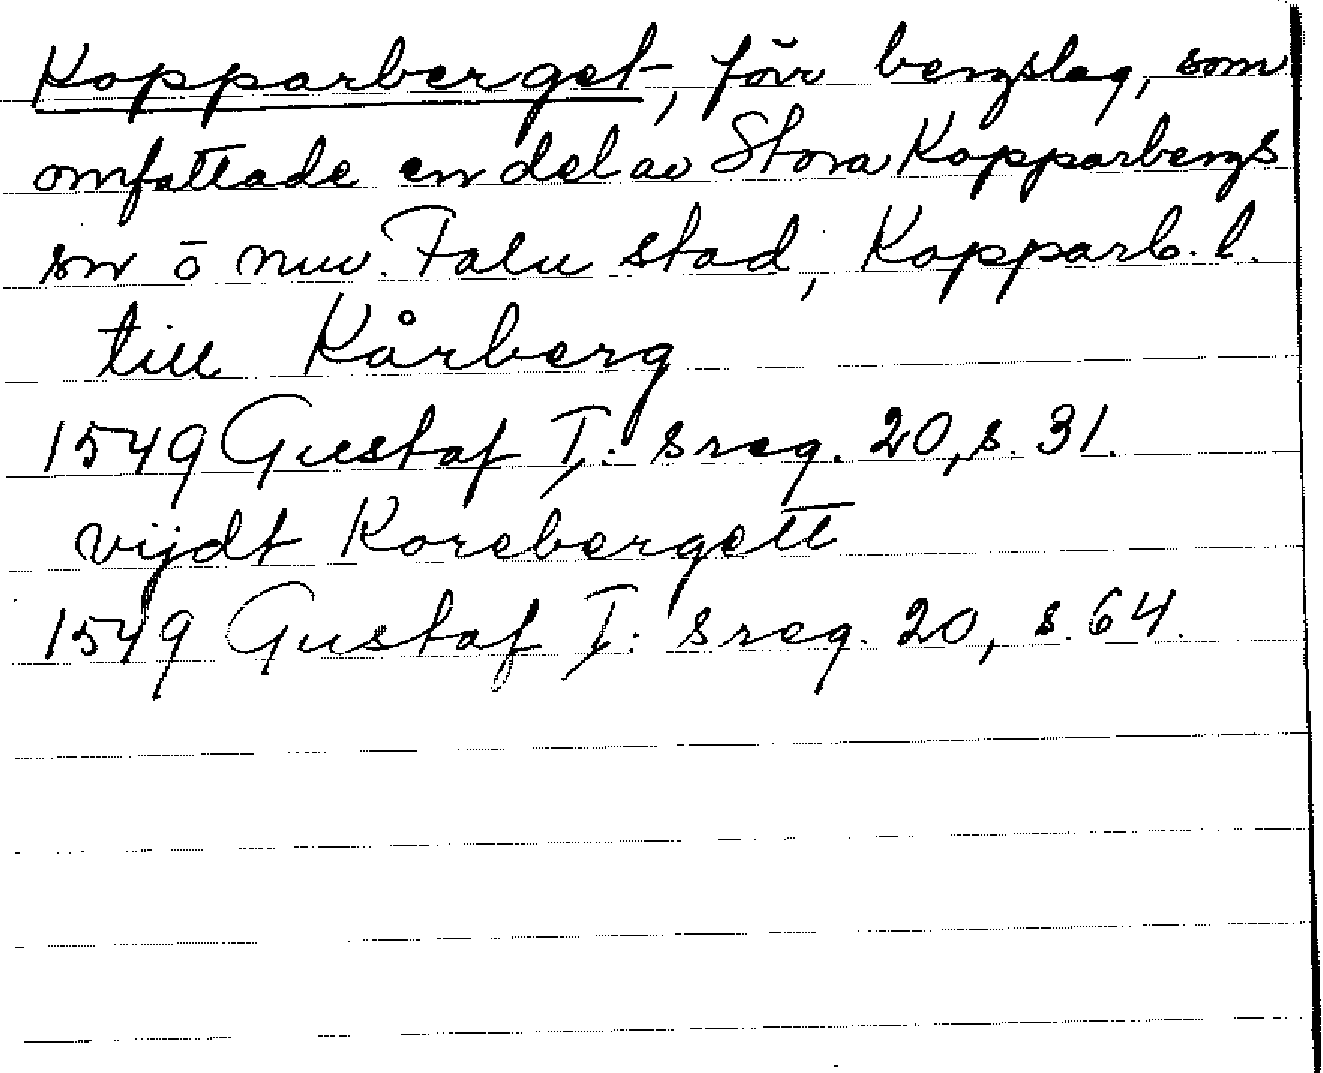 Kopparberget, förr bergslag, som
omfattade en del av Stora Kopparbergs
sn o nuv. Falu stad, Kopparb. l.
till Kårberg
1549 Gustaf I: s reg. 20, s. 31.
vijdt Korebergett
1549 Gustaf I: s reg. 20, s. 64.